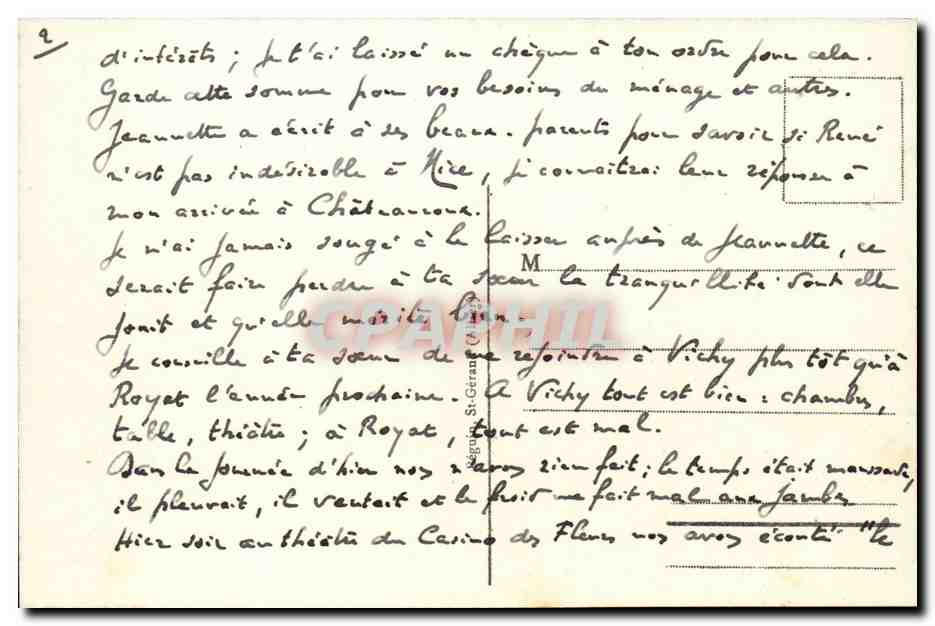 2
d'intérêts ; je t'ai laissé un chèque à ton ordre pour cela.
Garde cette somme pour vos besoins du ménage et autres.
Jeannette a écrit à ses beaux-parents pour savoir si René
n'est pas indésirable à Nice, je connaîtrai leur réponse à
mon arrivée à Châteauroux.
Je n'ai jamais songé à le laisser auprès de Jeannette, ce
M
serait faire perdre à ta sœur la tranquillité dont elle
jouit et qu'elle mérite bien.
CPAPHIL
Je conseille à ta sœur de me rejoindre à Vichy plus tôt qu'à
Royat l'année prochaine. A Vichy tout est bien : chambres,
table, théâtre ; à Royat, tout est mal.
Béguin, St-Gérand (Allier)
Dans la journée d'hier nous n'avons rien fait ; le temps était maussade,
il pleuvait, il ventait et le froid me fait mal aux jambes
Hier soir au théâtre du Casino des Fleurs nous avons écouté "le